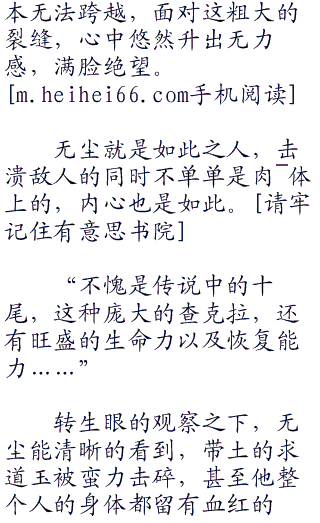 本无法跨越，面对这粗大的
裂缝，心中悠然升出无力
感，满脸绝望。
[m.heihei66.com手机阅读]
无尘就是如此之人，击
溃敌人的同时不单单是肉¯体
上的，内心也是如此。[请牢
记住有意思书院]
“不愧是传说中的十
尾，这种庞大的查克拉，还
有旺盛的生命力以及恢复能
力……”
转生眼的观察之下，无
尘能清晰的看到，带土的求
道玉被蛮力击碎，甚至他整
个人的身体都留有血红的